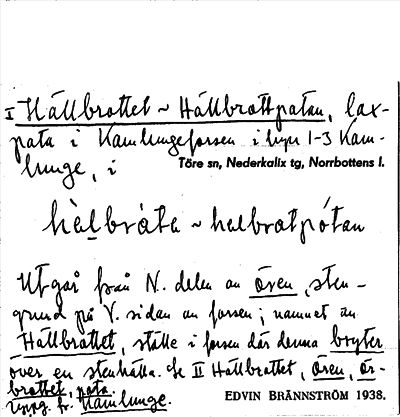 I Hällbrottet ~ Hällbrottpatan, lax-
pata i Kamlungeforsen i byn 1-3 Kam-
lunge, i Töre sn, Nederkalix tg, Norrbottens l.
hèlbråta ~ halbratpótan
Utgår från N. delen av ören, sten-
grund på V. sidan av forsen; namnet av
Hällbrottet, ställe i forsen där denna bryter
över en stenhälla. Se II Hällbrottet, ören, ör-
brottet, pata.
Uppg. fr. Kamlunge.
EDVIN BRÄNNSTRÖM 1938.